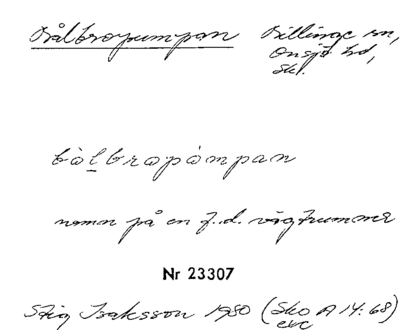 Bålbropumpan Billinge sn,
Onsjö hd,
Sk.
bålbropòmpan
namn på en f.d. vägtrumma
Nr 23307
Stig Isaksson 1930 (Sko A 14:68)
exc